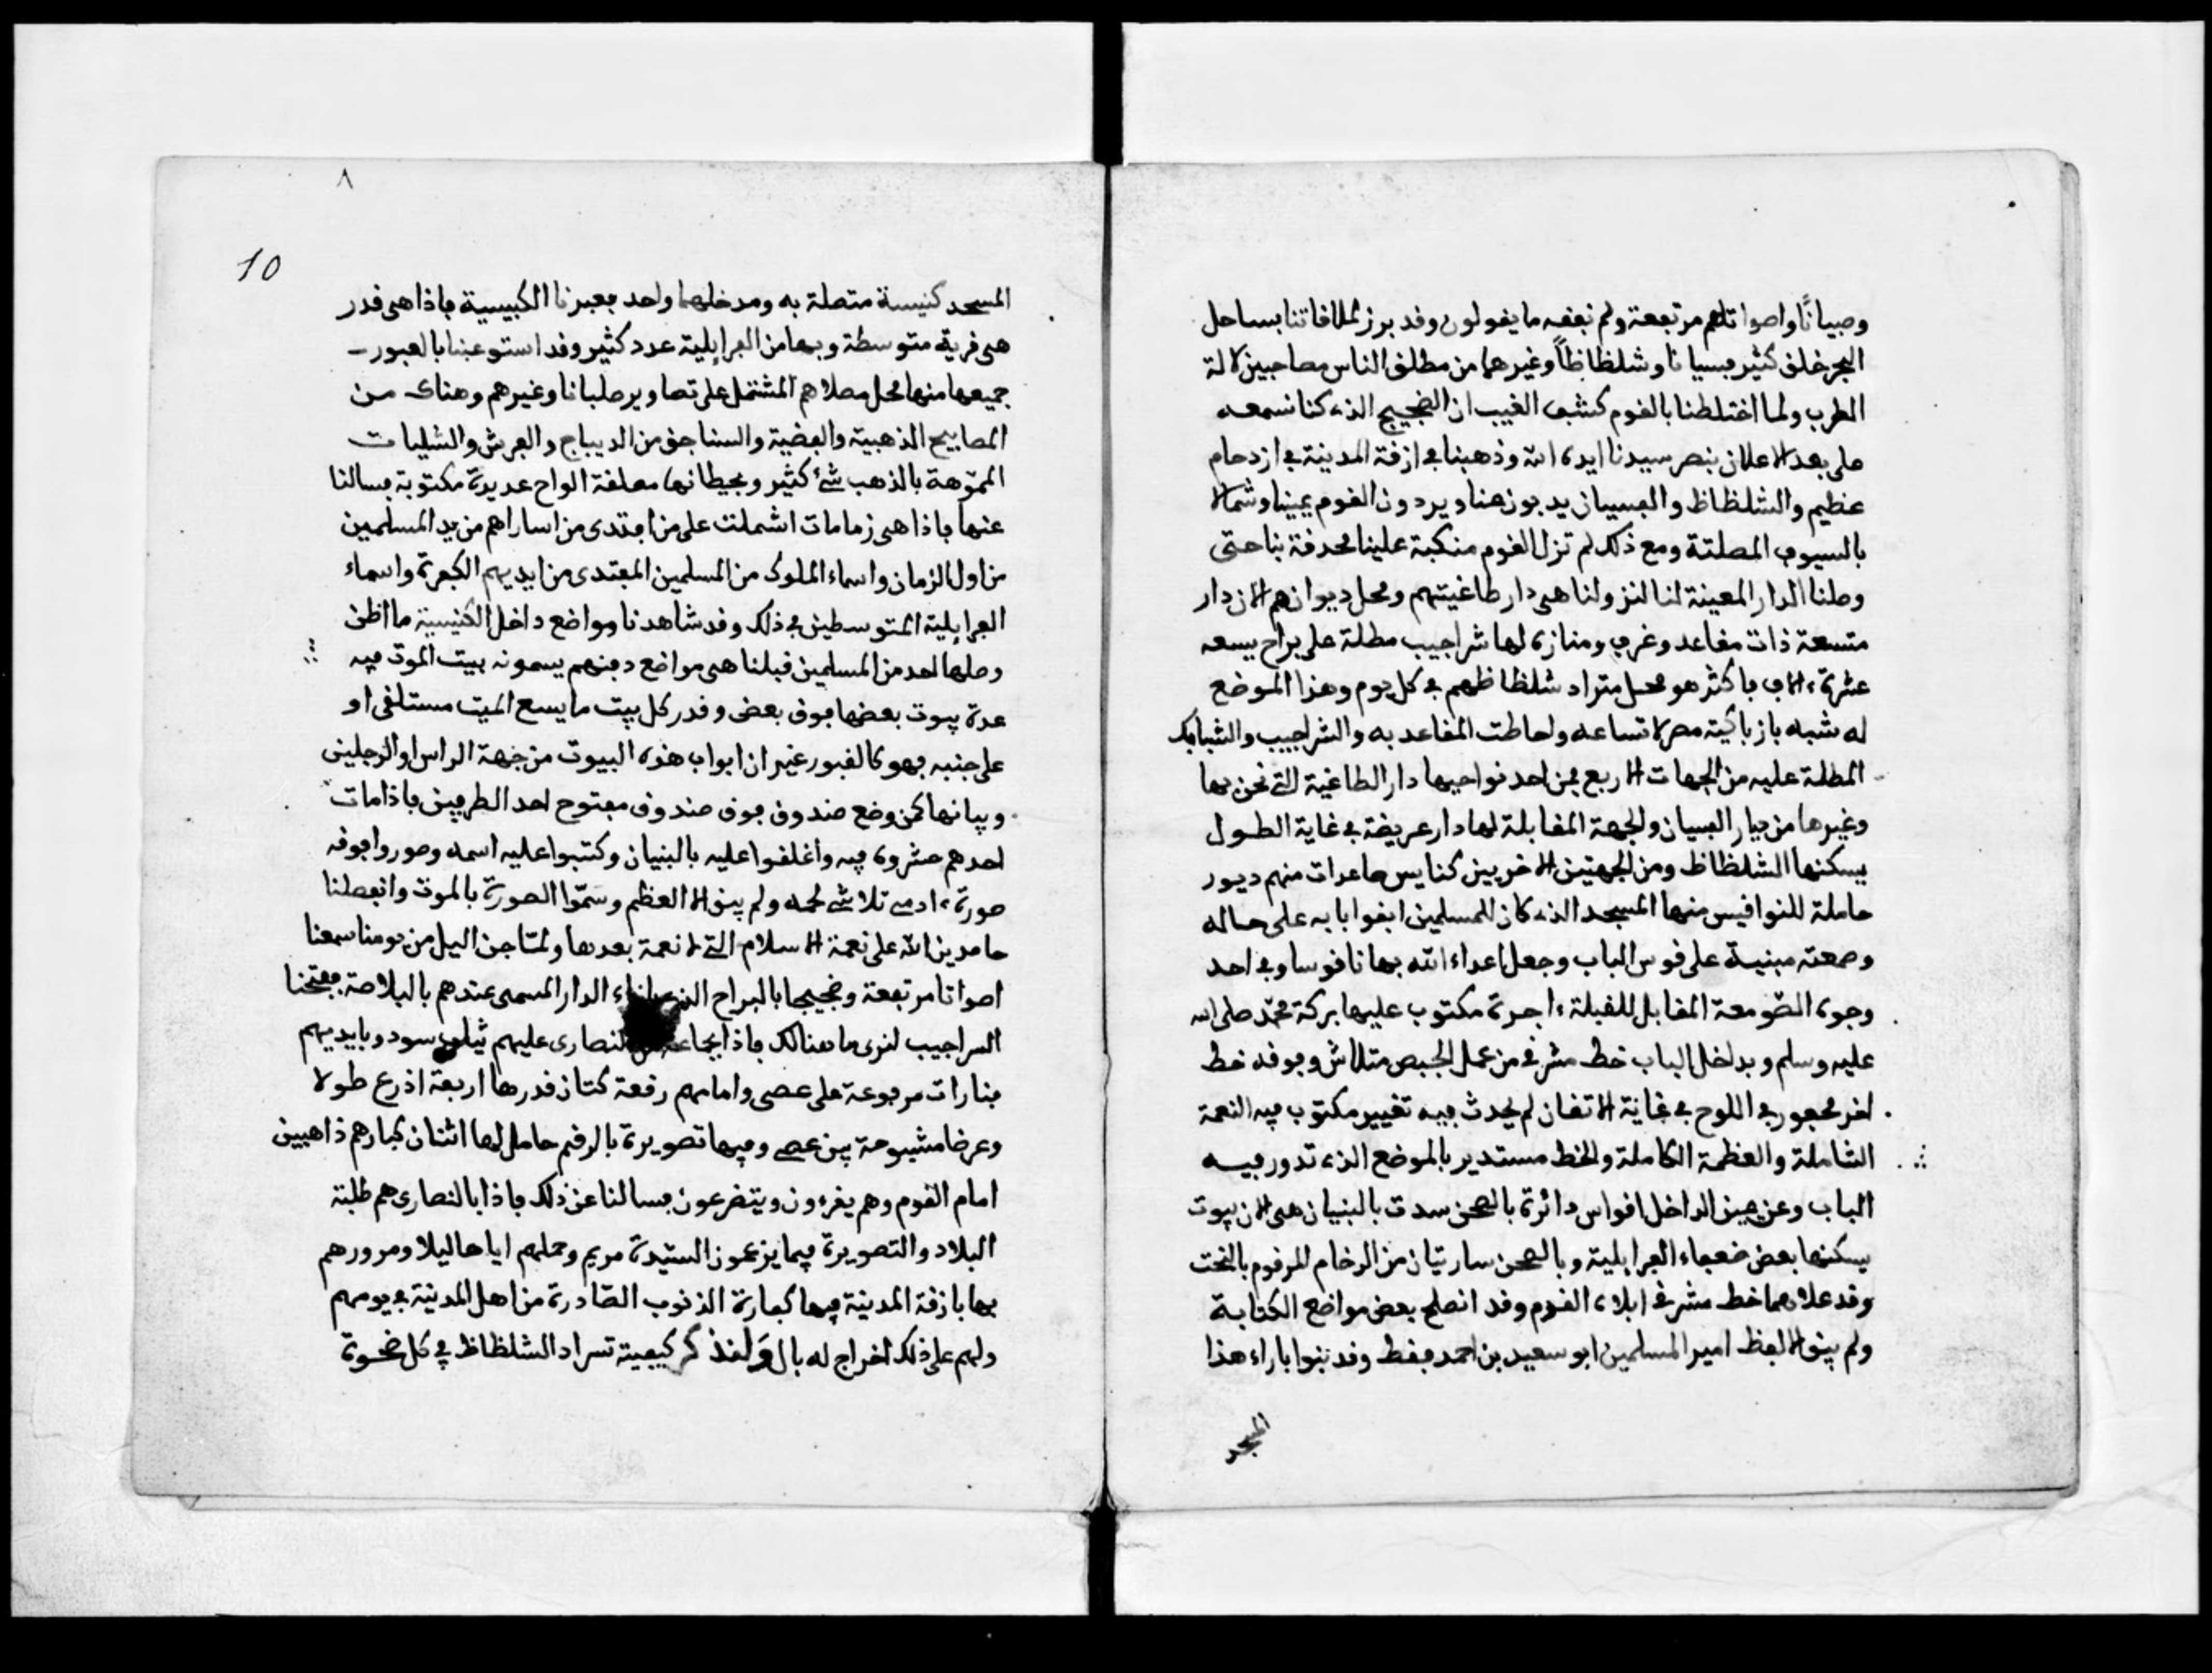 وصبيانًا واصواتلهم مرتفعة ولم نفقه ما يقولون وقد برز لملاقاتنا بساحل
البحر خلق كثير فسيانا وشلظاظاً وغيرهما من مطلق الناس مصاحبين لالة
الطرب ولما اختلطنا بالقوم كشف الغيب ان الضجيج الذي كنا نسمعه
على بعد الاعلان بنصر سيدنا ايده الله وذهبنا في ازقة المدينة في ازدحام
عظيم والشلظاظ والفسيان يدبون عنا ويردون القوم يمينا وشمالا
بالسيوف المصلتة ومع ذلك لم تزل القوم منكبة علينا محدقة بنا حتى
وصلنا الدار المعينة لنا لنزولنا هي دار طاغيتهم ومحل ديوانهم الان دار
متسعة ذات مقاعد وغرف ومنازه لها شراجيب مطلة على براح يسعه
عشرة ءالاف فاكثر هو محل متراد شلظاظهم في كل يوم وهذا الموضع
له شبه بازباكية مصر لاتساعه ولحاطت المقاعد به والشراجيب والشبابك
المطلة عليه من الجهات الاربع فمن احد نواحيها دار الطاغية التي نحن بها
وغيرها من ديار الفسيان والجهة المقابلة لها دار عريضة في غاية الطول
يسكنها الشلظاظ ومن الجهتين الاخريين كنايس صاعدات منهم ديور
حاملة للنواقيس منها المسجد الذي كان للمسلمين ابقوا بابه على حاله
وصمعته مبنية على قوس الباب وجعل اعداء الله بها ناقوسا وفي احد
وجوه الصّومعة المقابل للقبلة ءاجرة مكتوب عليها بركة محمّد صلى الله
عليه وسلم وبداخل الباب خط مشرقي من عمل الجبص متلاش وفوقه خط
اخر محفور في اللوح في غاية الاتقان لم يحدث فيه تغيير مكتوب فيه النعمة
الشاملة والعظمة الكاملة والخط مستدير بالموضع الذي تدور فيه
الباب وعن يمين الداخل اقواس دائرة بالصحن سدت بالبنيان هي الان بيوت
يسكنها بعض ضعفاء الفرايلية وبالصحن ساريتان من الرخام المرقوم بالنحت
وقد علاهما خط مشرقي ابلاه القدم وقد انصلح بعض مواضع الكتابة
ولم يبق الا لفظ امير المسلمين ابو سعيد بن احمد فقط وقد بنوا بازاء هذا
المسجد
٨
10
المسجد كنيسة متصلة به ومدخلهما واحد فعبرنا الكبيسية فاذا هي قدر
هي قرية متوسطة وبها من الفرايلية عدد كثير وقد استوعبنا بالعبور
جميعها منها محل مصلاهم المشتمل على تصاوير صلبانا وغيرهم وهناك من
المصابيح الذهبية والفضية والسناجق من الديباج والفرش والشليات
المموّهة بالذهب شئ كثير وبحيطانها معلقة الواح عديدة مكتوبة فسالنا
عنها فاذا هي زمامات اشملت على من افتدى من اساراهم من يد المسلمين
من اول الزمان واسماء الملوك من المسلمين المفتدى من ايديهم الكفرة واسماء
الفرايلية المتوسطين في ذلك وقد شاهدنا مواضع داخل الكنيسية ما اظن
وصلها احد من المسلمين قبلنا هي مواضع دفنهم يسمونه بيت الموت فيه
عدة بيوت بعضها فوق بعض وقدر كل بيت ما يسع الميت مستلقى او
على جنبه فهو كالقبور غير ان ابواب هذه البيوت من جهة الراس او الرجلين
وبيانها كمن وضع صندوق فوق صندوق مفتوح احد الطرفين فاذا مات
احدهم حشروه فيه واغلقوا عليه بالبنيان وكتبوا عليه اسمه وصوروا فوقه
صورة ءادمي تلاشى لحمه ولم يبق الا العظم وسمّوا الصورة بالموت وانفصلنا
حامدين الله على نعمة الاسلام التي لا نعمة بعدها ولمّا جن اليل من يومنا سمعنا
اصواتا مرتفعة وضجيجا بالبراح الذي بازاء الدار المسمى عندهم بالبلاصة ففتحنا
السراجيب لنرى ما هنالك فاذا بجاعة من النصارى عليهم ثياب سود وبايديهم
منارات مرفوعة على عصى وامامهم رقعة كتان قدرها اربعة اذرع طولا
وعرضا مشبوحة بين عصى وفيها تصويرة بالرقم حامل لها اثنان كبارهم ذاهبين
امام القوم وهم يقرءون ويتضرعون فسالنا عن ذلك فاذا بالنصارى هم طلبة
البلاد والتصويرة فيما يزعمون السّيّدة مريم وحملهم اياها ليلا ومرورهم
بها بازقة المدينة فيها كفارة الذنوب الصّادرة من اهل المدينة في يومهم
ولهم على ذلك اخراج له بال وَلنذكر كيفية تسراد الشلظاظ في كل ضحوة